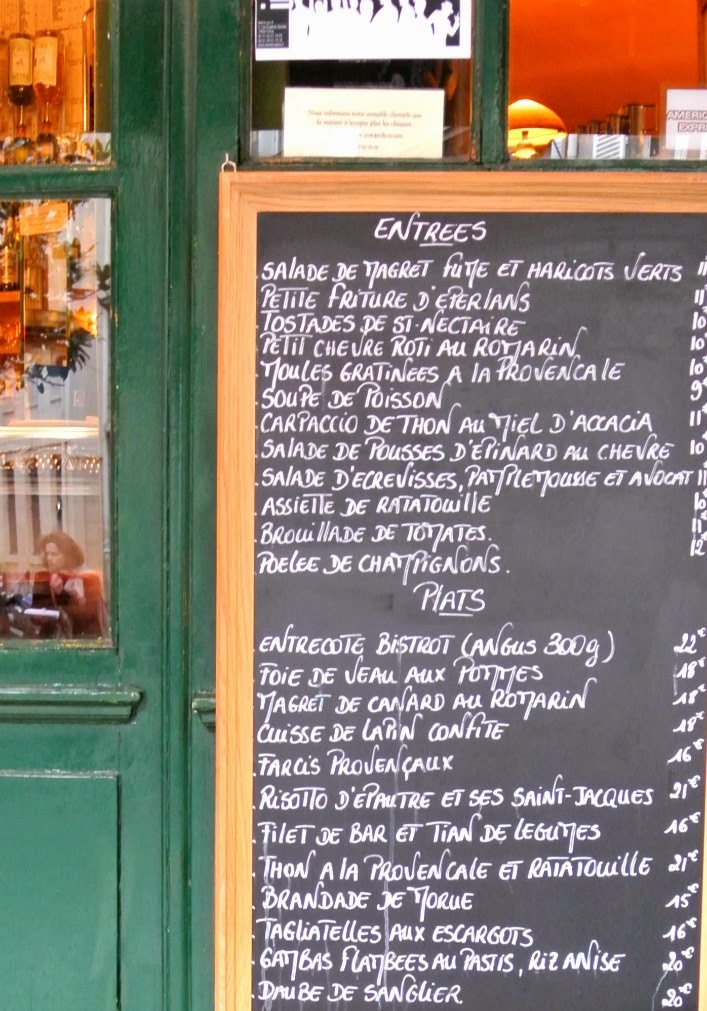 Nous informons notre aimable clientèle que
la maison n'accepte plus les chèques.
AMERICAN
EXPRESS
ENTREES
SALADE DE MAGRET FUME ET HARICOTS VERTS 11
PETITE FRITURE D'EPERLANS 11
TOSTADES DE ST-NECTAIRE 10
PETIT CHEVRE ROTI AU ROMARIN 10
MOULES GRATINEES A LA PROVENCALE 10€
SOUPE DE POISSON 9€
CARPACCIO DE THON AU MIEL D'ACCACIA 11€
SALADE DE POUSSES D'EPINARD AU CHEVRE 10
SALADE D'ECREVISSES, PAMPLEMOUSSE ET AVOCAT 11
ASSIETTE DE RATATOUILLE 10
BROUILLADE DE TOMATES. 11€
POELEE DE CHAMPIGNONS. 12€
PLATS
ENTRECOTE BISTROT (ANGUS 300g) 22€
FOIE DE VEAU AUX POMMES 18€
MAGRET DE CANARD AU ROMARIN 18€
CUISSE DE LAPIN CONFITE 18€
FARCIS PROVENÇAUX 16€
RISOTTO D'EPAUTRE ET SES SAINT-JACQUES 21€
FILET DE BAR ET TIAN DE LEGUMES 16€
THON A LA PROVENCALE ET RATATOUILLE 21€
BRANDADE DE MORUE 15€
TAGLIATELLES AUX ESCARGOTS 16€
GAMBAS FLAMBEES AU PASTIS, RIZ ANISE 20€
DAUBE DE SANGLIER 20€